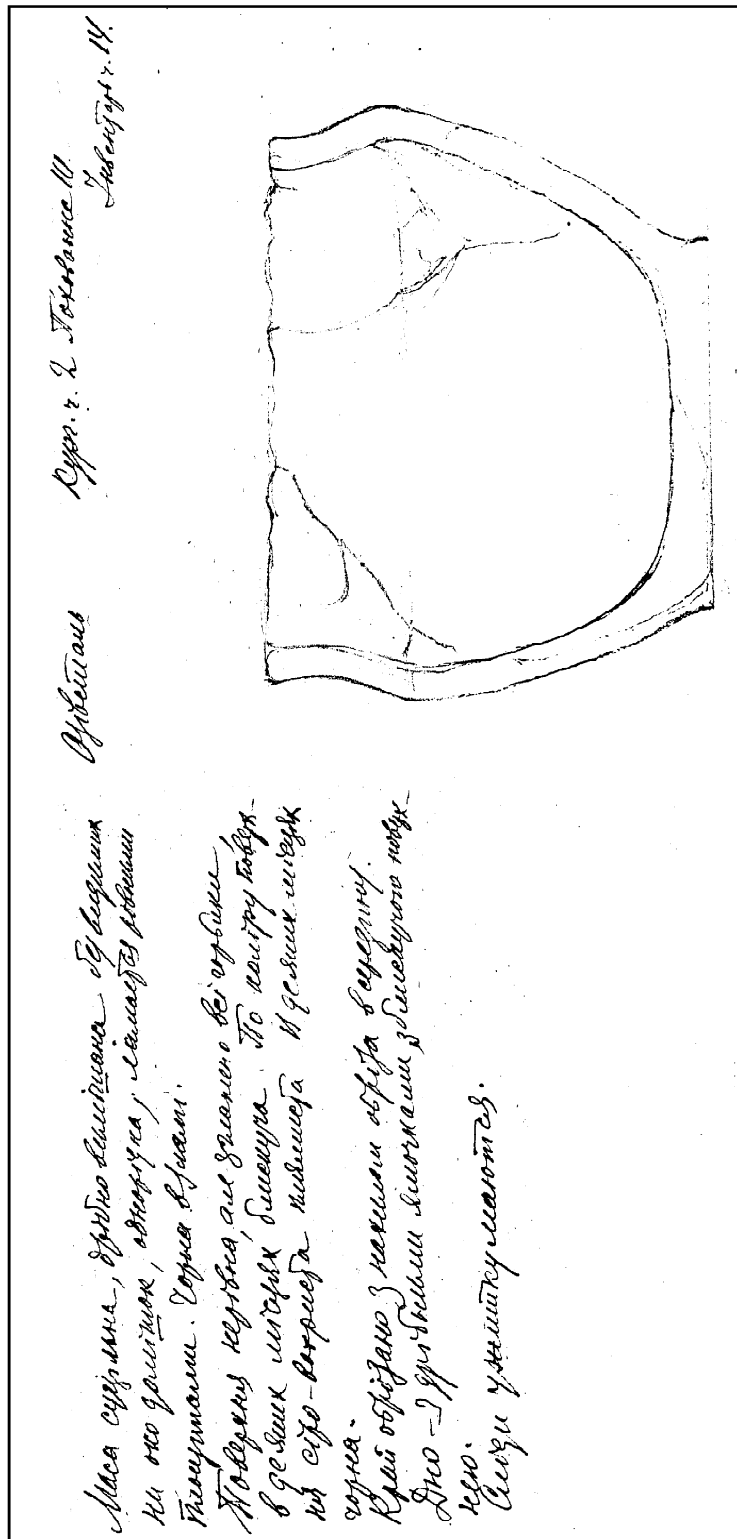 Кург. ч. 2 Поховання 10
Інвентар ч. 14.
Маса суцільна, дрібно вимішана без видимих
на око домішок, однорідна, ламається рівними
площинами. Чорна в зламі.
Поверхня нерівна, але згладжено всі горбики,
в деяких місцях блискуча. По кольору поверх-
ня сіро- плямиста й в деяких місцях
чорна.
Край обрізано з нахилом обріза всередину.
Дно – з дрібними ямочками, з блискучою поверх-
нею.
Сліди ужитку маються.